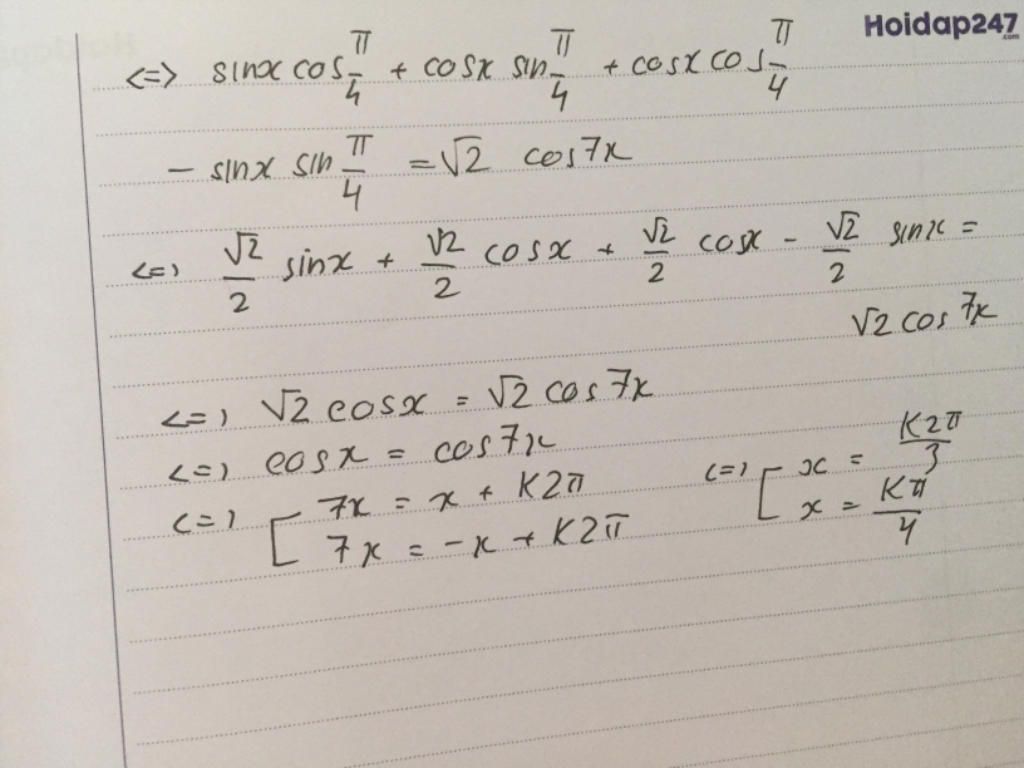 Hoidap247
.com
<=> sinx cos π/4 + cosx sin π/4 + cosx cos π/4
- sinx sin π/4 = √2 cos7x
<=> √2/2 sinx + √2/2 cosx + √2/2 cosx - √2/2 sinx =
√2 cos 7x
<=> √2 cosx = √2 cos 7x
<=> cosx = cos7x
<=> [ 7x = x + K2π <=> [ x = K2π/3
7x = -x + K2π x = Kπ/4